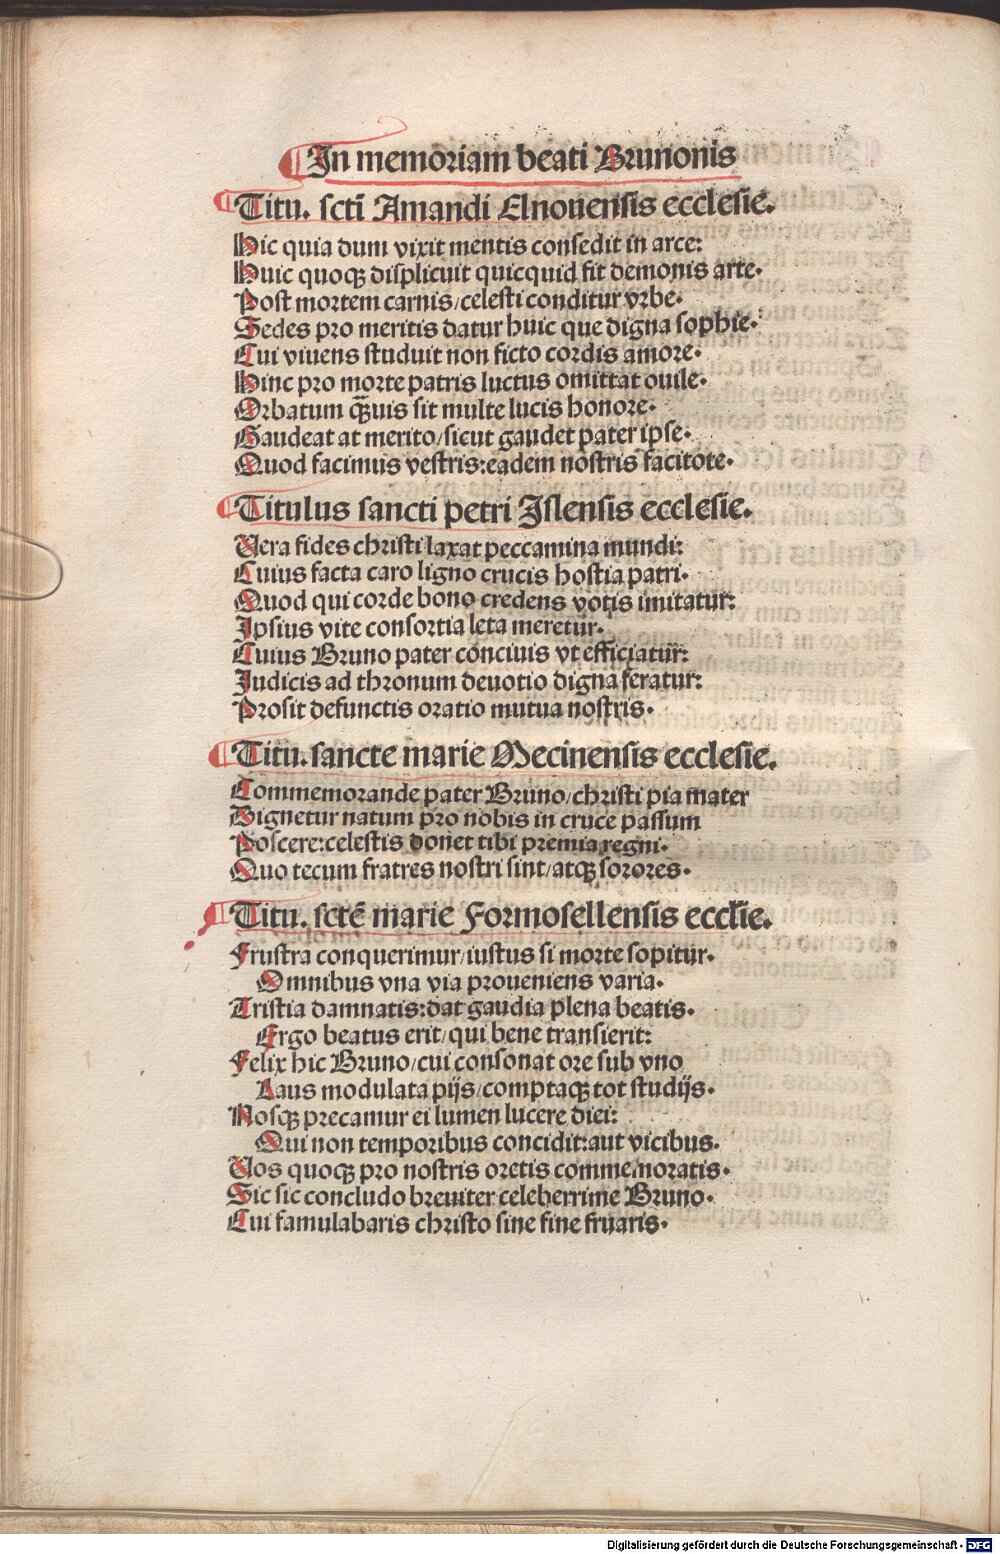 In memoriam beati Brunonis
Titu. sctī Amandi Elnouensis ecclesie.
Hic quia dum vixit mentis consedit in arce:
Huic quoqꝫ displicuit quicquid fit demonis arte.
Post mortem carnis/celesti conditur vrbe.
Sedes pro meritis datur huic que digna sophie.
Cui viuens studuit non ficto cordis amore.
Hinc pro morte patris luctus omittat ouile.
Orbatum q̄uis sit multe lucis honore.
Gaudeat at merito/sicut gaudet pater ipse.
Quod facimus vestris:eadem nostris facitote.
Titulus sancti petri Islensis ecclesie.
Vera fides christi laxat peccamina mundi:
Cuius facta caro ligno crucis hostia patri.
Quod qui corde bono credens votis imitatur:
Ipsius vite consortia leta meretur.
Cuius Bruno pater conciuis vt efficiatur:
Judicis ad thronum deuotio digna feratur:
Prosit defunctis oratio mutua nostris.
Titu. sancte marie Mecinensis ecclesie.
Commemorande pater Bruno/christi pia mater
Dignetur natum pro nobis in cruce passum
Poscere:celestis donet tibi premia regni.
Quo tecum fratres nostri sint/atqꝫ sorores.
Titu. sctē marie Formosellensis eccl̄ie.
Frustra conquerimur/iustus si morte sopitur.
Omnibus vna via proueniens varia.
Tristia damnatis:dat gaudia plena beatis.
Ergo beatus erit/qui bene transierit:
Felix hic Bruno/cui consonat ore sub vno
Laus modulata pijs/comptaqꝫ tot studijs.
Nosqꝫ precamur ei lumen lucere diei:
Qui non temporibus concidit:aut vicibus.
Vos quoqꝫ pro nostris oretis commemoratis.
Sic sic concludo breuiter celeberrime Bruno.
Cui famulabaris christo sine fine fruaris.
Digitalisierung gefördert durch die Deutsche Forschungsgemeinschaft - DFG